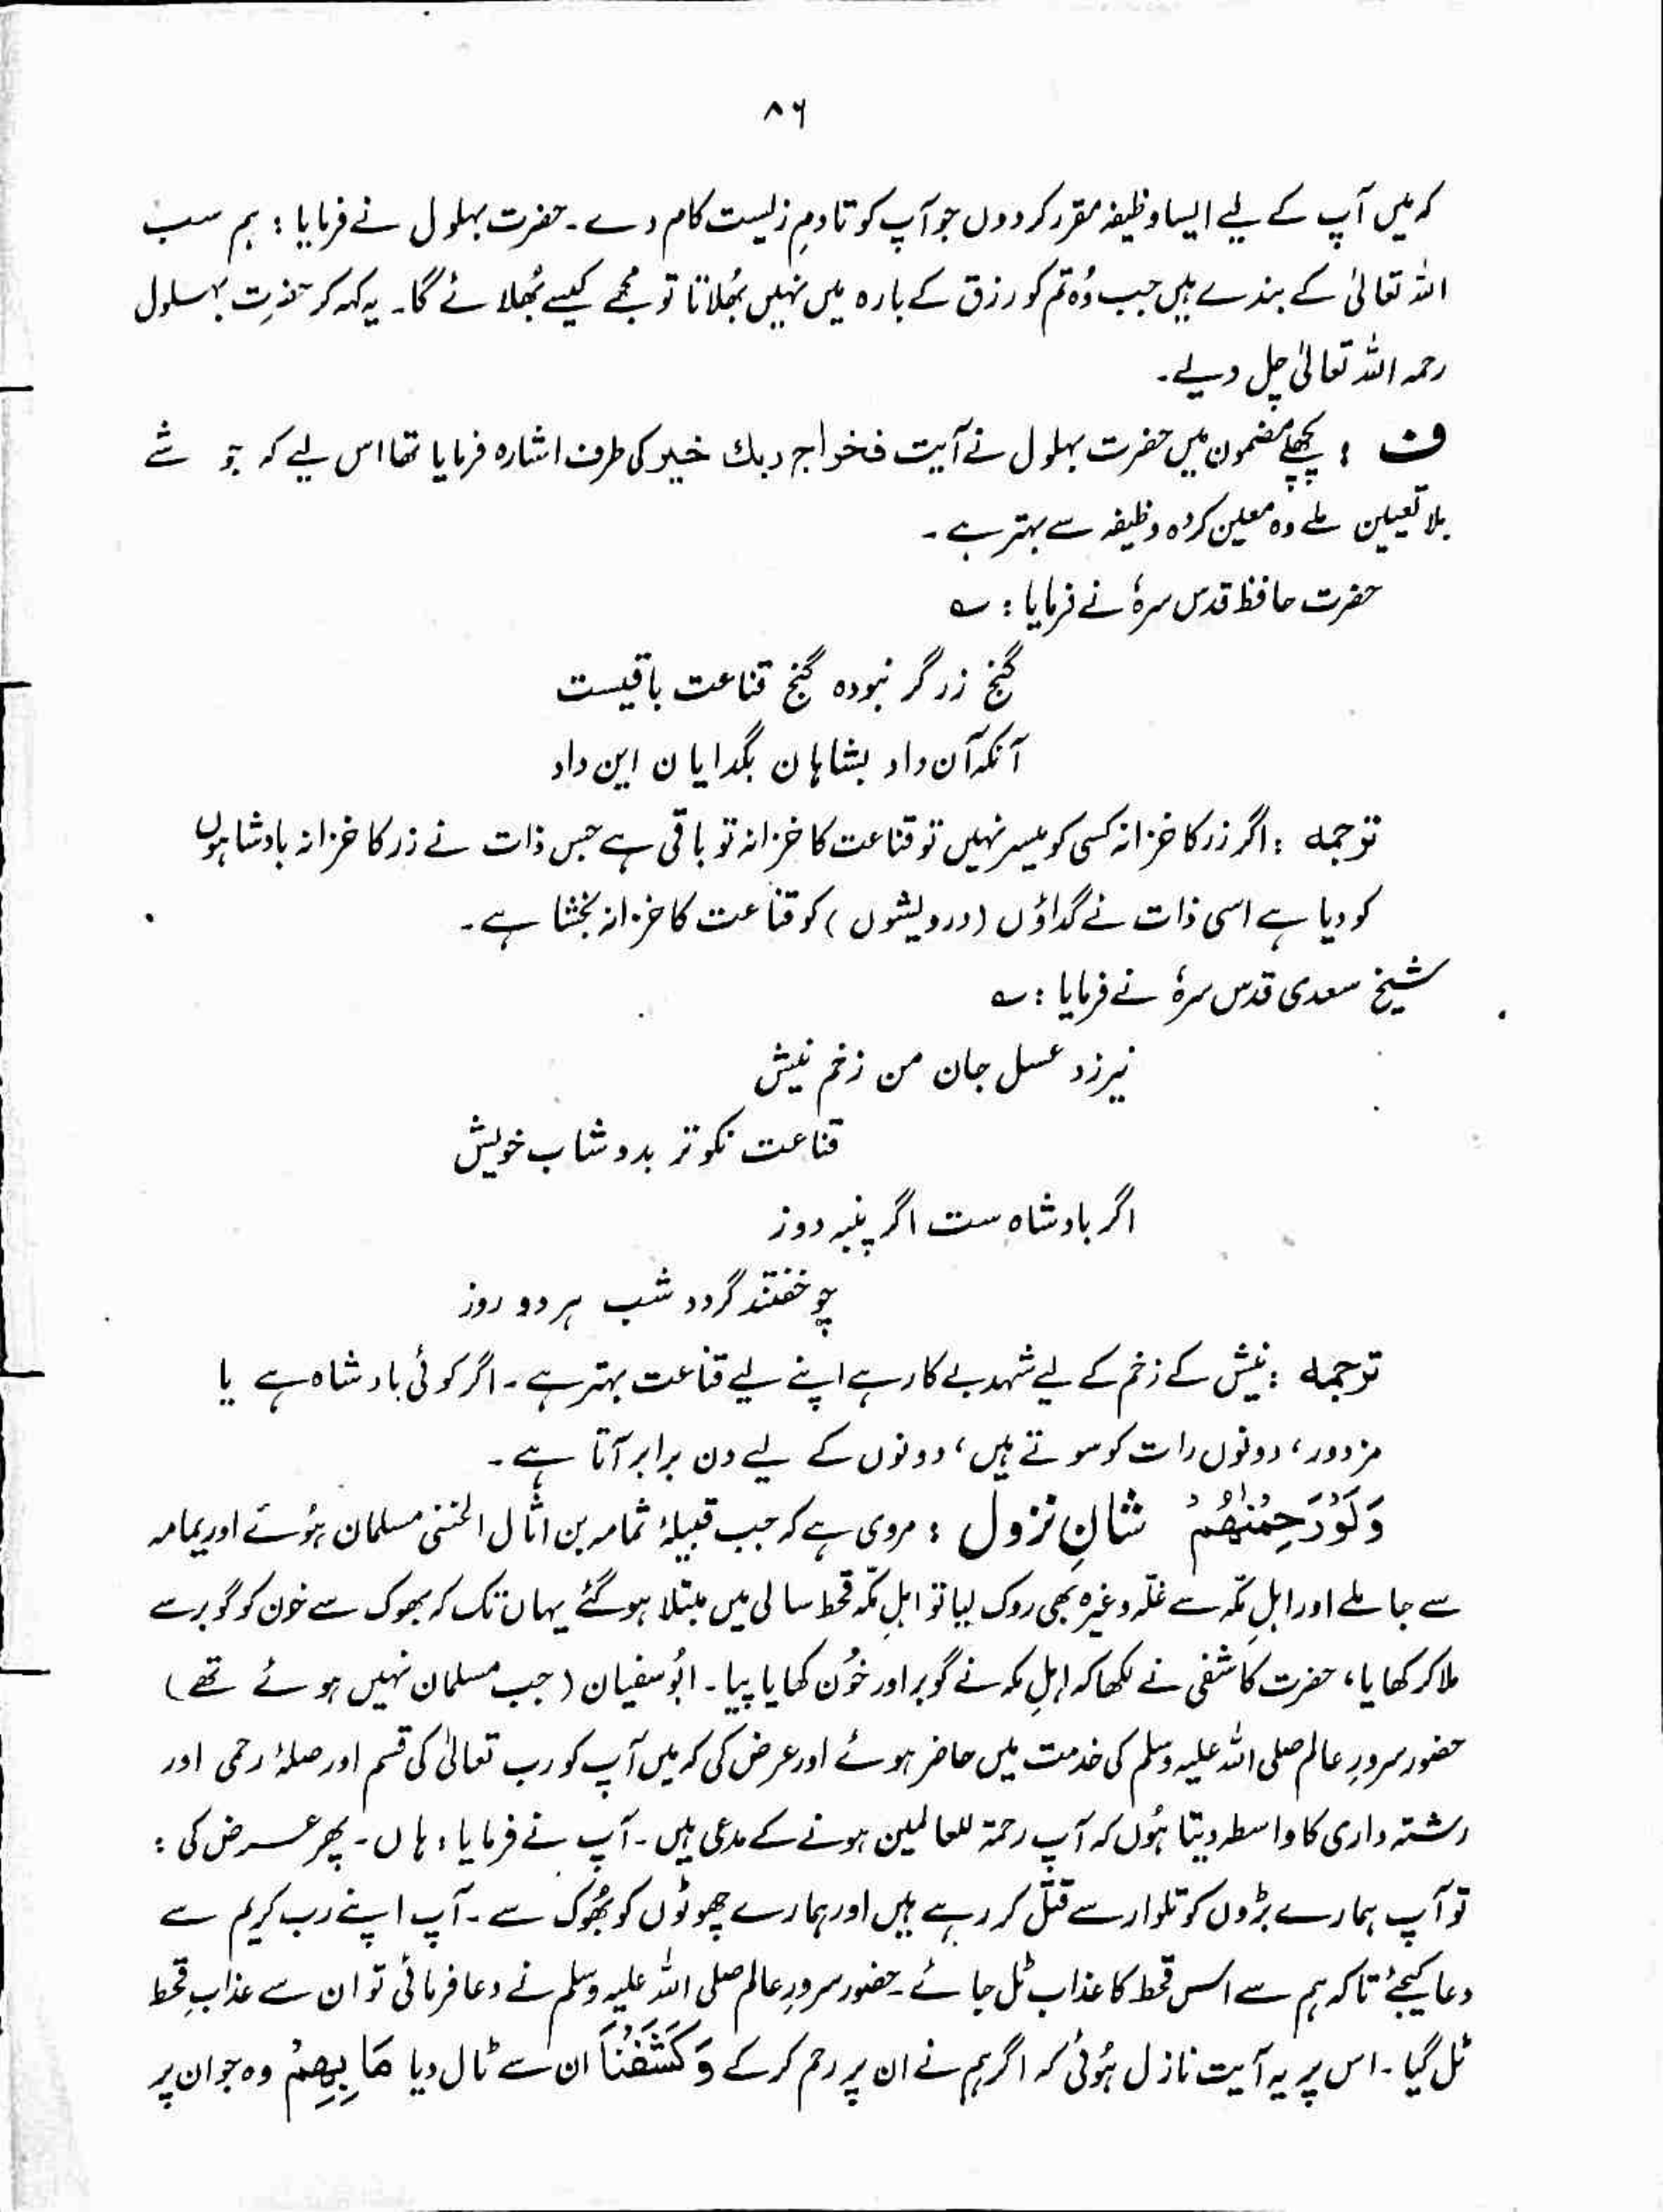 ۸۶
کہ میں آپ کے لیے ایسا وظیفہ مقرر کر دوں جو آپ کو تا دمِ زیست کام دے۔ حضرت بہلول نے فرمایا : ہم سب
اللہ تعالیٰ کے بندے ہیں جب وُہ تم کو رزق کے بارہ میں نہیں بُھلاتا تو مجھے کیسے بُھلائے گا۔ یہ کہہ کر حضرت بہلول
رحمہ اللہ تعالیٰ چل دیے۔
ف : پچھلے مضمون میں حضرت بہلول نے آیت فخراج ربك خیر کی طرف اشارہ فرمایا تھا اس لیے کہ جو شے
بلا تعیین ملے وہ معین کردہ وظیفہ سے بہتر ہے۔
حضرت حافظ قدس سرہٗ نے فرمایا : ؎
گنج زر گر نبودہ گنج قناعت باقیست
آنکہ آن داد بشاہان بگدایان این داد
ترجمہ : اگر زر کا خزانہ کسی کو میسر نہیں تو قناعت کا خزانہ تو باقی ہے جس ذات نے زر کا خزانہ بادشاہوں
کو دیا ہے اسی ذات نے گداؤں (درویشوں) کو قناعت کا خزانہ بخشا ہے۔
شیخ سعدی قدس سرہٗ نے فرمایا : ؎
نیرزد عسل جان من زخم نیش
قناعت نکوتر بدوشاب خویش
اگر بادشاہ ست اگر پنبہ دوز
چو خفتند گردد شب ہر دو روز
ترجمہ : نیش کے زخم کے لیے شہد بے کار ہے اپنے لیے قناعت بہتر ہے۔ اگر کوئی بادشاہ ہے یا
مزدور، دونوں رات کو سوتے ہیں، دونوں کے لیے دن برابر آتا ہے۔
وَلَوْ رَحِمْنٰهُمْ شانِ نزول : مروی ہے کہ جب قبیلۂ ثمامہ بن اثال الحنفی مسلمان ہُوئے اور یمامہ
سے جا ملے اور اہلِ مکّہ سے غلّہ وغیرہ بھی روک لیا تو اہلِ مکّہ قحط سالی میں مبتلا ہو گئے یہاں تک کہ بھوک سے خون کو گوبر سے
ملا کر کھایا، حضرت کاشفی نے لکھا کہ اہلِ مکہ نے گوبر اور خوُن کھایا پیا۔ ابُو سفیان (جب مسلمان نہیں ہوئے تھے)
حضور سرورِ عالم صلی اللہ علیہ وسلم کی خدمت میں حاضر ہوئے اور عرض کی کہ میں آپ کو رب تعالیٰ کی قسم اور صلۂ رحمی اور
رشتہ داری کا واسطہ دیتا ہُوں کہ آپ رحمۃ للعالمین ہونے کے مدعی ہیں۔ آپ نے فرمایا : ہاں۔ پھر عرض کی :
تو آپ ہمارے بڑوں کو تلوار سے قتل کر رہے ہیں اور ہمارے چھوٹوں کو بُھوک سے۔ آپ اپنے رب کریم سے
دعا کیجئے تاکہ ہم سے اس قحط کا عذاب ٹل جائے۔ حضور سرورِ عالم صلی اللہ علیہ وسلم نے دعا فرمائی تو ان سے عذابِ قحط
ٹل گیا۔ اس پر یہ آیت نازل ہُوئی کہ اگر ہم نے ان پر رحم کر کے وَكَشَفْنَا ان سے ٹال دیا مَا بِهِمْ وہ جو ان پر